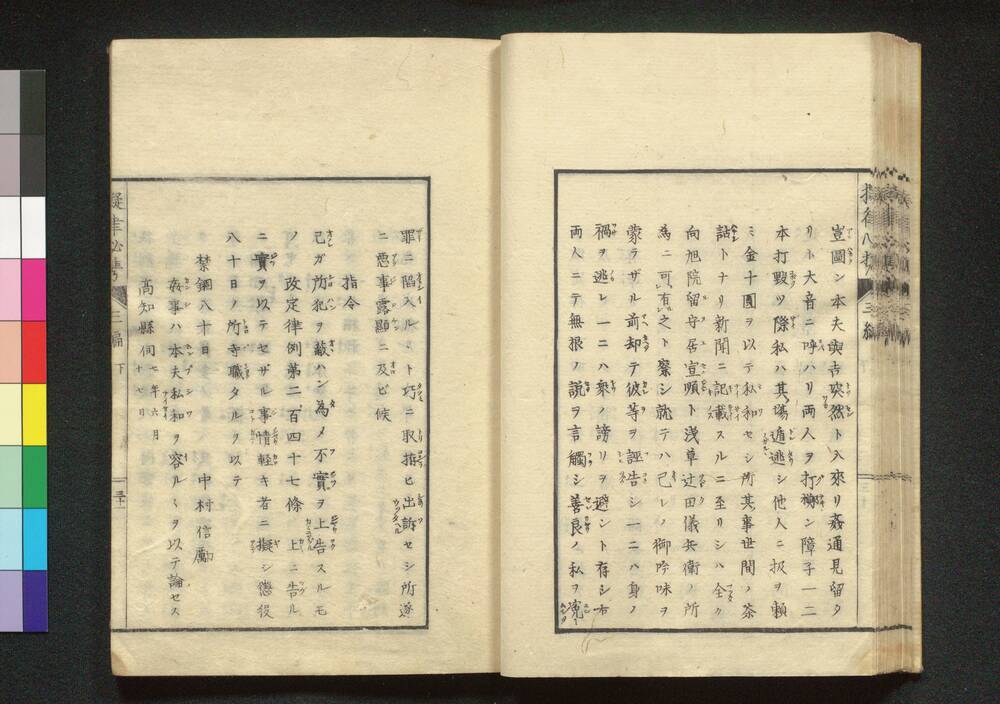 豈圖ン本夫與吉突然ト入來リ姦通見留タ
リト大音ニ呼ハリ両人ヲ打擲シ障子一二
本打毀ツ際私ハ其場遁逃シ他人ニ扱ヲ頼
ミ金十圓ヲ以テ私和セシ所其事世間ノ茶
話トナリ新聞ニ記載スルニ至リシハ全ク
向旭院留守居宣順ト浅草辻田儀兵衛ノ所
為ニ可有之ト察シ就テハ己レノ御吟味ヲ
蒙ラザル前却テ彼等ヲ誣告シ一ニハ身ノ
禍ヲ逃レ一ニハ衆ノ謗リヲ避ント存シ右
両人ニテ無根ノ説ヲ言觸シ善良ノ私ヲ寃
罪ニ陷入ルヽト巧ニ取拵ヒ出訴セシ所遂
ニ悪事露顯ニ及ビ候
指令
己ガ所犯ヲ蔽ハン為メ不實ヲ上告スルモ
ノ改定律例第二百四十七條 上ニ告ル
ニ實ヲ以テセザル事情軽キ者ニ擬シ懲役
八十日ノ所寺職タルヲ以テ
禁錮八十日 中村信勵
姦事ハ本夫私和ヲ容ルヽヲ以テ論セス
高知縣伺 七年六月 十七日
擬律必携 三編 下